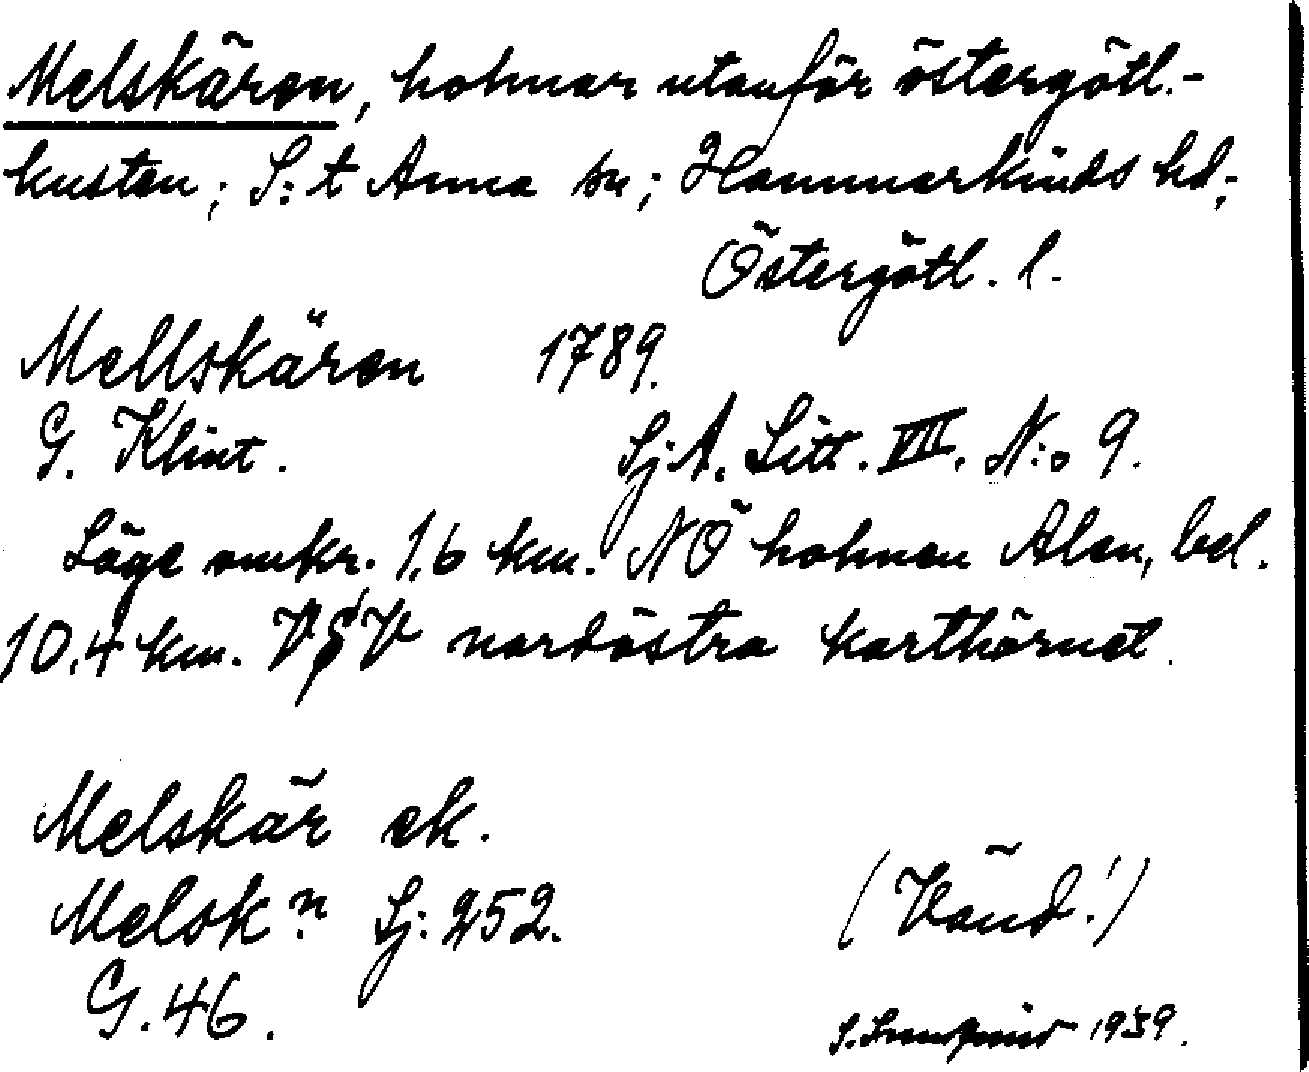 Melskären, holmar utanför östergötl.-
kusten; S:t Anna sn; Hammarkinds hd;
Östergötl. l.
Mellskären 1789.
G. Klint. Sj.A. Litt. VII. N:o 9.
Läge omkr. 1,6 km. NÖ holmen Alen, bel.
10,4 km. VSV nordöstra karthörnet.
Melskär ek.
Melsk n. Sj: 252.
G. 46.
(Vänd!)
S. 1939.